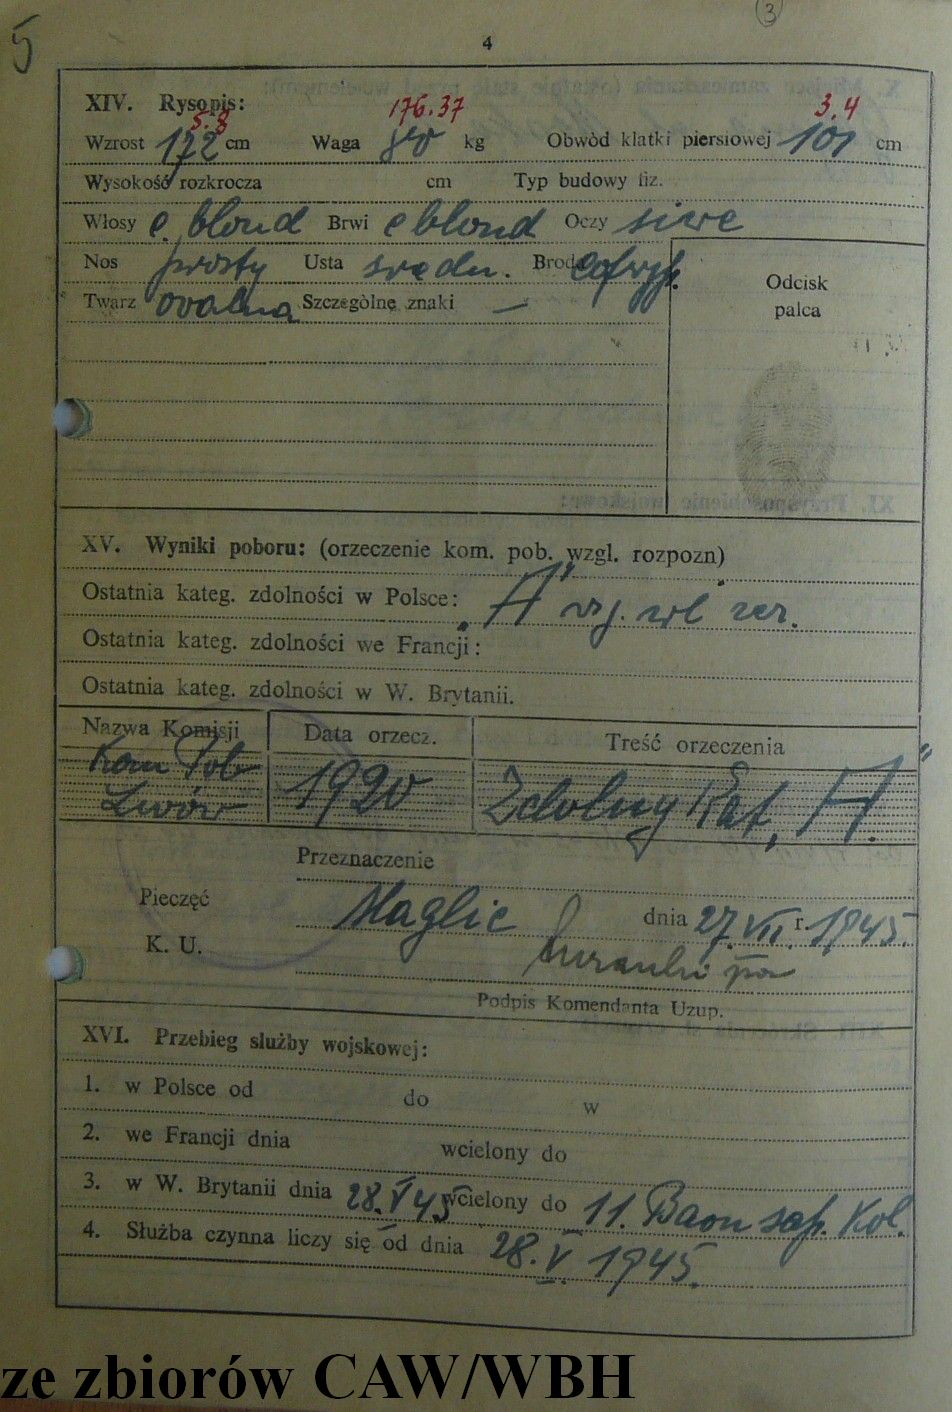 5
3
4
XIV. Rysopis:
5.8 176.37 3.4
Wzrost 172 cm Waga 80 kg Obwód klatki piersiowej 101 cm
Wysokość rozkrocza cm Typ budowy fiz.
Włosy c. blond Brwi c blond Oczy siwe
Nos prosty Usta średn. Broda
Twarz owalna Szczególne znaki —
Odcisk
palca
XV. Wyniki poboru: (orzeczenie kom. pob. wzgl. rozpozn)
Ostatnia kateg. zdolności w Polsce: „A”
Ostatnia kateg. zdolności we Francji:
Ostatnia kateg. zdolności w W. Brytanii.
Nazwa Komisji Data orzecz. Treść orzeczenia
Kom Pob
Lwów 1920 Zdolny Kat. „A”
Przeznaczenie
Pieczęć Maglie dnia 27. VII. r. 1945.
K. U.
Podpis Komendanta Uzup.
XVI. Przebieg służby wojskowej:
1. w Polsce od do w
2. we Francji dnia wcielony do
3. w W. Brytanii dnia 28. V 45 wcielony do 11. Baon sap. Kol.
4. Służba czynna liczy się od dnia 28. V. 1945.
ze zbiorów CAW/WBH